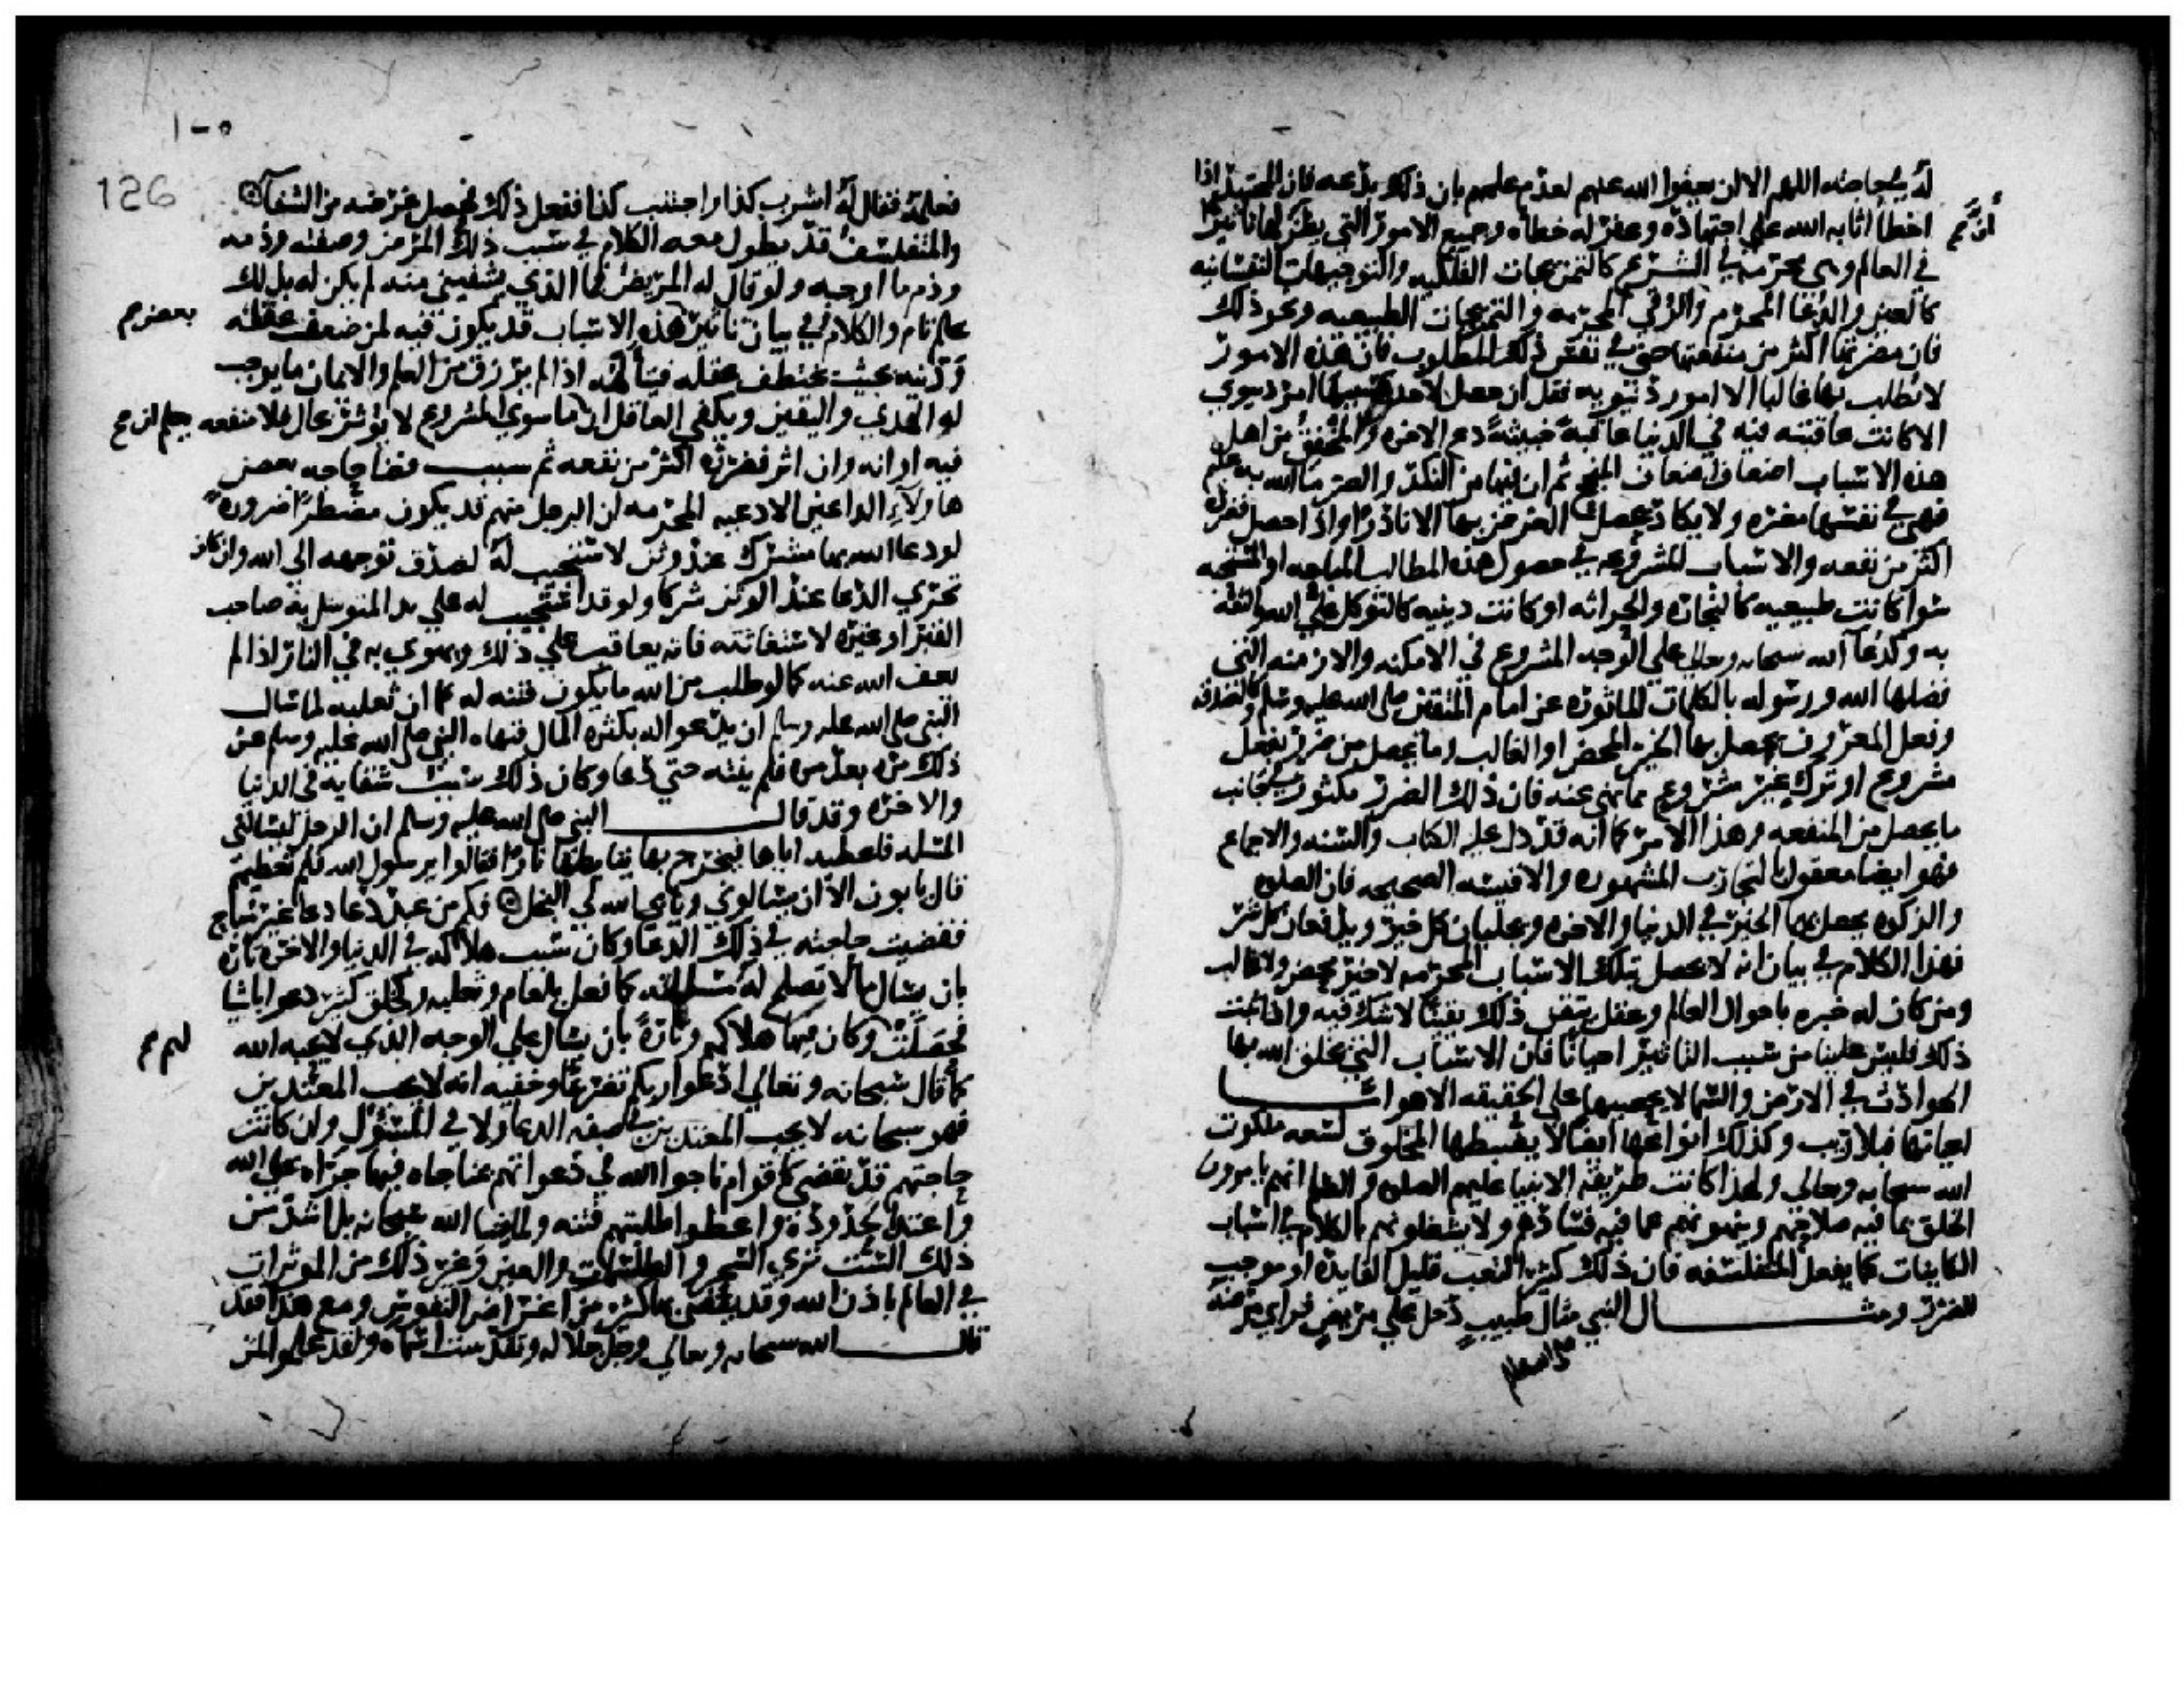 له في خاصه اللهم الا ان يعفوا الله عنهم لعدم علمهم بان ذلك بدعه فان المجتهد اذا
اخطأ اثابه الله على اجتهاده وغفر له خطأه وجميع الامور التي يظن لها تاثيرا
في العالم وهي محرمه في الشرع كالتمزيجات الفلكيه والتوجيهات النفسانيه
كالعين والدعا المحرم والرقى المحرمه والتمزيجات الطبيعيه ونحو ذلك
فان مضرتها اكثر من منفعتها حتى في نفس ذلك المطلوب فان هذه الامور
لا يطلب بها غالبا الا امور دنيويه فقل ان حصل لاحد بسببها امر دنيوي
الا كانت عاقبته فيه في الدنيا عاقبة خبيثة دع الاخره والمخفق من اهل
هذه الاسباب اضعاف اضعاف المنجح ثم ان فيها من النكد والضرر ما الله به عليم
فهي في نفسها مضره ولا يكاد يحصل الغرض بها الا نادرا واذا حصل فضرره
اكثر من نفعه والاسباب المشروعه في حصول هذه المطالب المباحه او المستحبه
سوا كانت طبيعيه كالتجاره والحراثه او كانت دينيه كالتوكل على الله والثقه
به وكدعا الله سبحانه وتعالى على الوجه المشروع في الامكنه والازمنه التي
فضلها الله ورسوله بالكلمات الماثوره عن امام المتقين صلى الله عليه وسلم وكالصدقه
وفعل المعروف يحصل بها الخير المحض او الغالب وما يحصل من ضرر بفعل
مشروع او ترك غير مشروع مما نهي عنه فان ذلك الضرر مكثور في جانب
ما يحصل من المنفعه وهذا الامر كما انه قد دل عليه الكتاب والسنه والاجماع
فهو ايضا معقول بالتجارب المشهوره والاقيسه الصحيحه فان الصلوه
والزكوه يحصل بهما الخير في الدنيا والاخره ويجلبان كل خير ويدفعان كل شر
فهذا الكلام في بيان انه لا يحصل بتلك الاسباب المحرمه لا خير محض ولا غالب
ومن كان له خبره باحوال العالم وعقل تيقن ذلك يقينا لا شك فيه واذا ثبت
ذلك فليس علينا من سبب التاثير احيانا فان الاسباب التي يخلق الله بها
الحوادث في الارض والسما لا يحصيها على الحقيقه الا هو اما
اعيانها فلا ريب وكذلك انواعها ايضا لا يضبطها المخلوق لسعه ملكوت
الله سبحانه وتعالى ولهذا كانت طريقه الانبيا عليهم الصلوه والسلام انهم يامرون
الخلق بما فيه صلاحهم وينهونهم عما فيه فسادهم ولا يشغلونهم بالكلام في اسباب
الكاينات كما يفعل المتفلسفه فان ذلك كثير التعب قليل الفايده او موجب
للضرر ومثال النبي مثال طبيب دخل على مريض فراي مرضه
126
فعلمه فقال له اشرب كذا واجتنب كذا ففعل ذلك فحصل غرضه من الشفا
والمتفلسف قد يطول معه الكلام في سبب ذلك المرض وصفته وذمه
وذم ما اوجبه ولو قال له المريض فما الذي يشفيني منه لم يكن له بذلك
علم تام والكلام في بيان تاثير هذه الاسباب قد يكون فيه لمن ضعف عقله
ودينه بحيث يختطف عقله فيتأله اذا لم يرزق من العلم والايمان ما يوجب
له الهدي واليقين ويكفي العاقل ان ما سوي المشروع لا يؤثر بحال فلا منفعه
فيه او انه وان اثر فضرره اكثر من نفعه ثم سبب قضا حاجه بعض
هاولاء الداعين الادعيه المحرمه ان الرجل منهم قد يكون مضطرا ضرورة
لو دعا الله بها مشرك عند وثن لاستجيب له لصدق توجهه الى الله وان كان
تحري الدعا عند الوثن شركا ولو قد استجيب له على يد المتوسل به صاحب
القبر او غيره لاستغاثته فانه يعاقب على ذلك ويهوي به في النار اذا لم
يعف الله عنه كما لو طلب من الله ما يكون فتنه له كما ان ثعلبه لما سال
النبي صلى الله عليه وسلم ان يدعو الله بكثره المال فنهاه النبي صلى الله عليه وسلم عن
ذلك مره بعد مره فلم ينته حتى دعا وكان ذلك سبب شقايه في الدنيا
والاخره وقد قال النبي صلى الله عليه وسلم ان الرجل ليسالني
المسله فاعطيه اياها فيخرج بها يتابطها نارا فقالوا يرسول الله فلم تعطيهم
قال يابون الا ان يسالوني ويابى الله لي البخل فكم من عبد دعا دعا غير مباح
فقضيت حاجته في ذلك الدعا وكان سبب هلاكه في الدنيا والاخره تاره
بان يسال ما لا تصلح له مسالته كما فعل بلعام وثعلبه وكخلق كثير دعوا باشيا
فحصلت وكان فيها هلاكهم وتارة بان يسال على الوجه الذي لا يحبه الله
كما قال سبحانه وتعالى ادعوا ربكم تضرعا وخفيه انه لا يحب المعتدين
فهو سبحانه لا يحب المعتدين في صفه الدعا ولا في المسئول وان كانت
حاجتهم قد تقضى كاقوام ناجوا الله في دعواتهم بمناجاه فيها جراه على الله
واعتدا لحدوده واعطوا طلبتهم فتنه ولما يشا الله سبحانه بل اشد من
ذلك الست تري السحر والطلسمات والعين وغير ذلك من الموثرات
في العالم باذن الله وقد يقضى بها كثير من اغراض النفوس ومع هذا فقد
قال الله سبحانه وتعالى وجل جلاله وتقدست اسماه ولقد علموا لمن